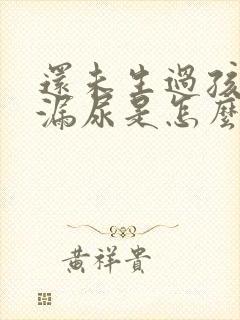 還未生過孩
漏尿是怎麼
黃祥貴